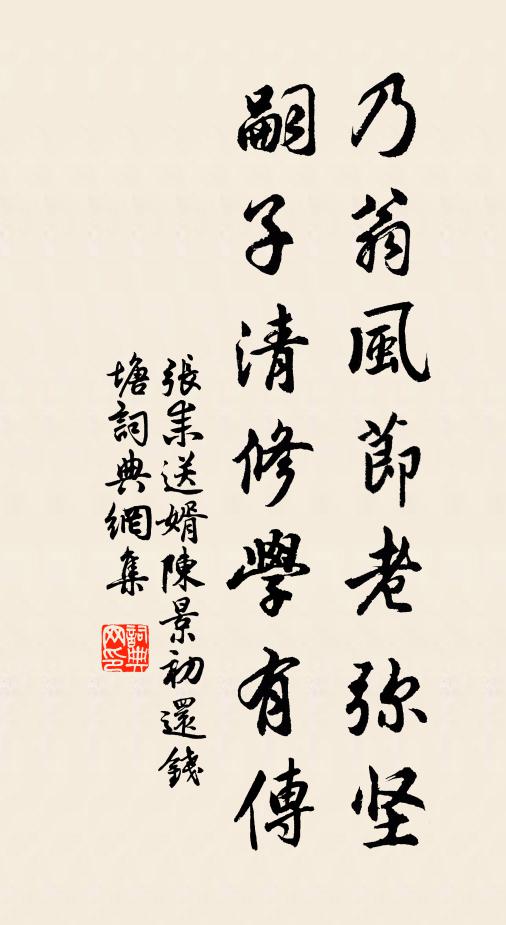 乃翁風節老弥坚
嗣子清修學有傳
張耒送婿陳景初還錢
塘詞典網集
詞典網印